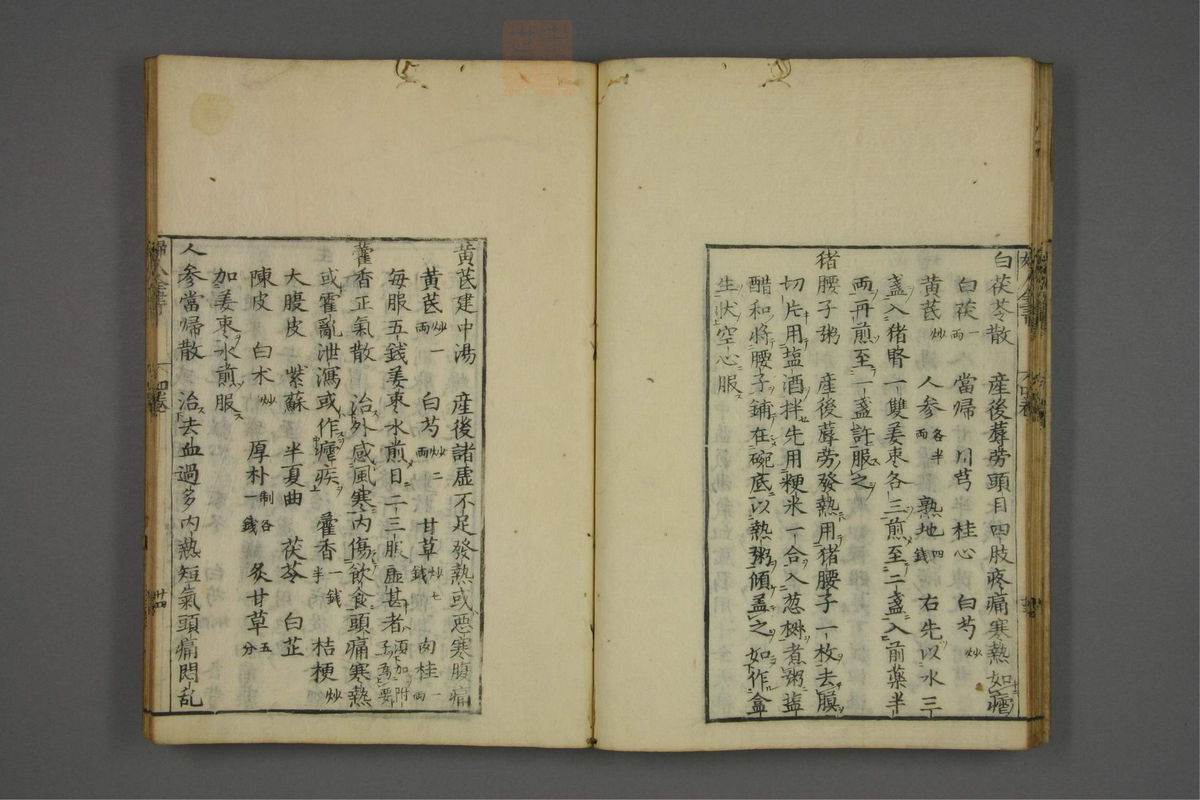 白茯苓散 產後蓐勞頭目四肢疼痛寒熱如瘧
白茯一両 當歸 川芎 桂心 白芍炒
黃芪炒 人參各半両 熟地四錢 右先以水三
盞入猪腎一雙姜棗各三煎至二盞入前藥半
両再煎至一盞許服之
猪腰子粥 產後蓐勞發熱用猪腰子一枚去膜
切片用塩酒拌先用粳米一合入葱椒煮粥塩
醋和將腰子鋪在碗底以熱粥傾盖之如作盒
生狀空心服
黃芪建中湯 產後諸虛不足發熱或惡寒腹痛
黃芪炒一両 白芍炒二両 甘草炒七錢 肉桂一両
每服五錢姜棗水煎日二三服虛甚者須加附子為要
藿香正氣散 治外感風寒內傷飲食頭痛寒熱
或霍亂泄瀉或作瘧疾 藿香一錢半 桔梗炒
大腹皮 紫蘇 半夏曲 茯苓 白芷
陳皮 白朮炒 厚朴制各一錢 炙甘草五分
加姜棗水煎服
人參當歸散 治去血過多內熱短氣頭痛悶乱